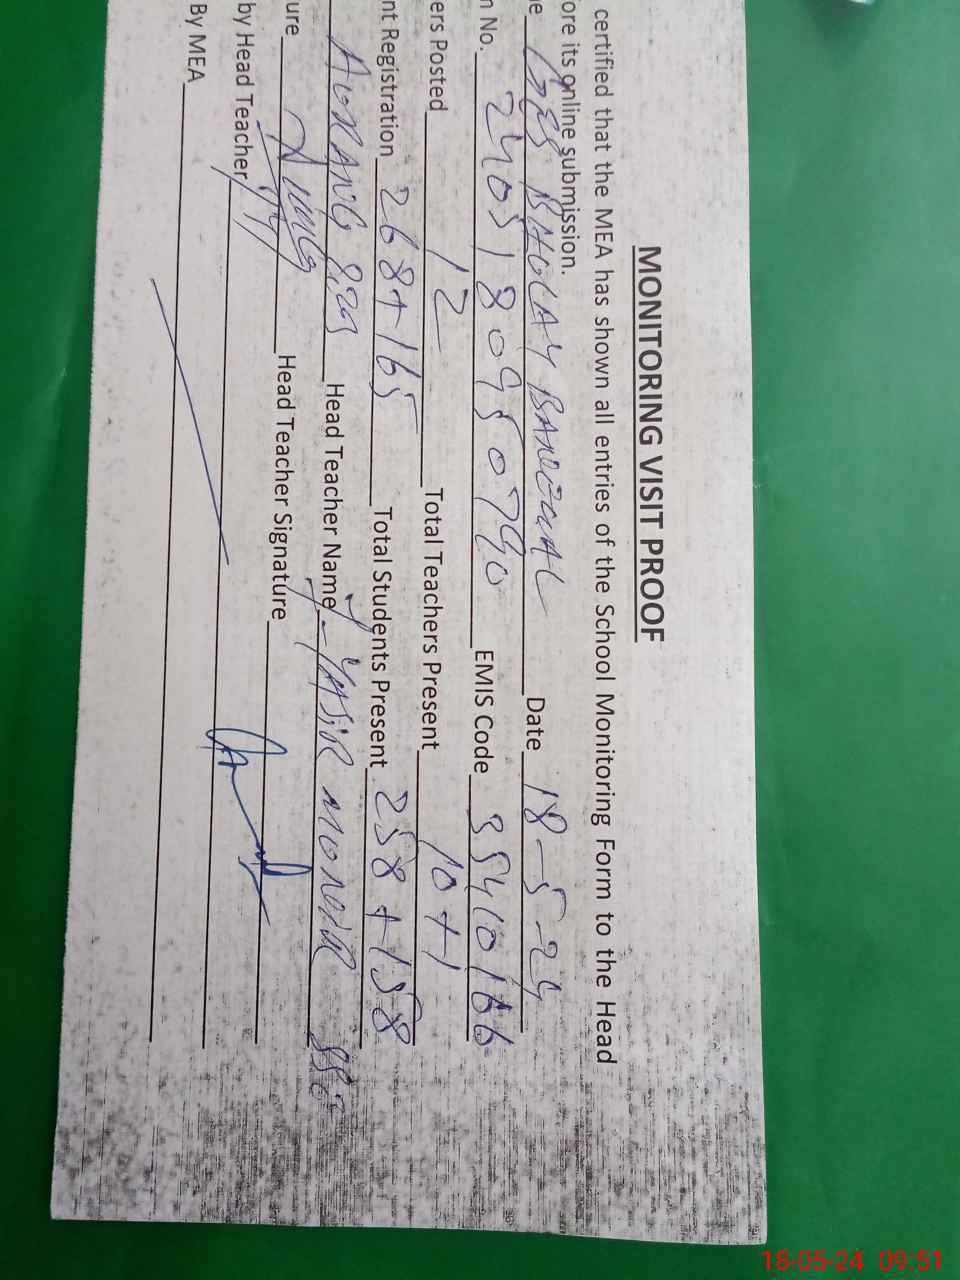 MONITORING VISIT PROOF
certified that the MEA has shown all entries of the School Monitoring Form to the Head
ore its online submission.
e GES Date 18-5-24
n No. 2405180950790 EMIS Code 35410166
ers Posted 12 Total Teachers Present 10+1
nt Registration 268+165 Total Students Present 258+158
Head Teacher Name YASIR MONEER SSE
ure Head Teacher Signature
by Head Teacher
By MEA
18-05-24 09:51